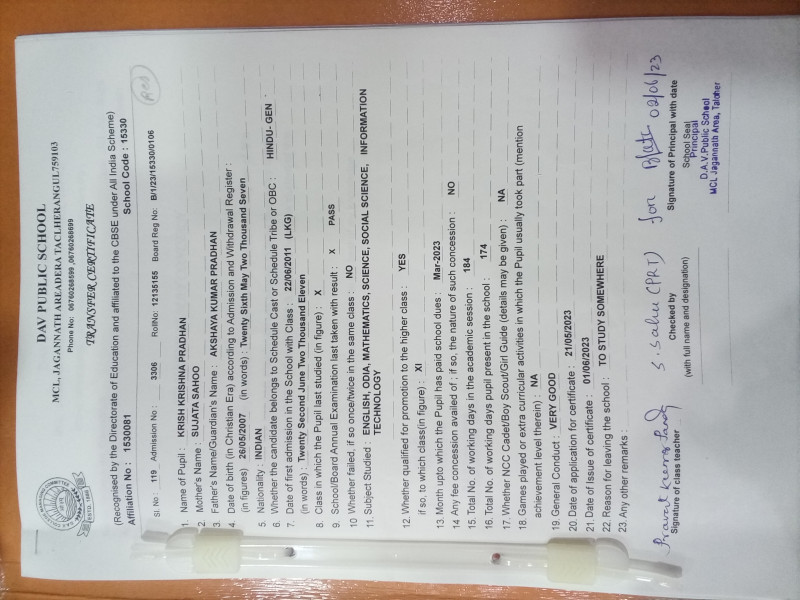 DAV PUBLIC SCHOOL
MCL, JAGANNATH AREADERA TACLHERANGUL759103
Phone No: 06760268699 ,06760268699
TRANSFER CERTIFICATE
(Recognised by the Directorate of Education and affiliated to the CBSE under All India Scheme)
Affiliation No : 1530081 School Code : 15330
Sl. No 119 Admission No.: 3306 RollNo: 12135155 Board Reg No: B/1/23/15330/0106
1. Name of Pupil : KRISH KRISHNA PRADHAN
2. Mother's Name : SUJATA SAHOO
3. Father's Name/Guardian's Name : AKSHAYA KUMAR PRADHAN
4. Date of birth (in Christian Era) according to Admission and Withdrawal Register :
(in figures) 26/05/2007 (in words) : Twenty Sixth May Two Thousand Seven
5. Nationality : INDIAN
6. Whether the candidate belongs to Schedule Cast or Schedule Tribe or OBC : HINDU- GEN
7. Date of first admission in the School with Class : 22/06/2011 (LKG)
(in words) : Twenty Second June Two Thousand Eleven
8. Class in which the Pupil last studied (in figure) : X
9. School/Board Annual Examination last taken with result : X PASS
10 Whether failed, if so once/twice in the same class : NO
11. Subject Studied : ENGLISH, ODIA, MATHEMATICS, SCIENCE, SOCIAL SCIENCE, INFORMATION
TECHNOLOGY
12. Whether qualified for promotion to the higher class : YES
if so, to which class(in figure) : XI
13. Month upto which the Pupil has paid school dues : Mar-2023
14 Any fee concession availed of : if so, the nature of such concession : NO
15. Total No. of working days in the academic session : 184
16. Total No. of working days pupil present in the school : 174
17. Whether NCC Cadet/Boy Scout/Girl Guide (details may be given) : NA
18. Games played or extra curricular activities in which the Pupil usually took part (mention
achievement level therein) : NA
19. General Conduct : VERY GOOD
20. Date of application for certificate : 21/05/2023
21. Date of Issue of certificate : 01/06/2023
22. Reason for leaving the school : TO STUDY SOMEWHERE
23. Any other remarks :
S. Sahu (PRT) for 02/06/23
Signature of class teacher Checked by Signature of Principal with date
(with full name and designation) School Seal
Principal
D.A.V. Public School
MCL Jagannath Area, Talcher